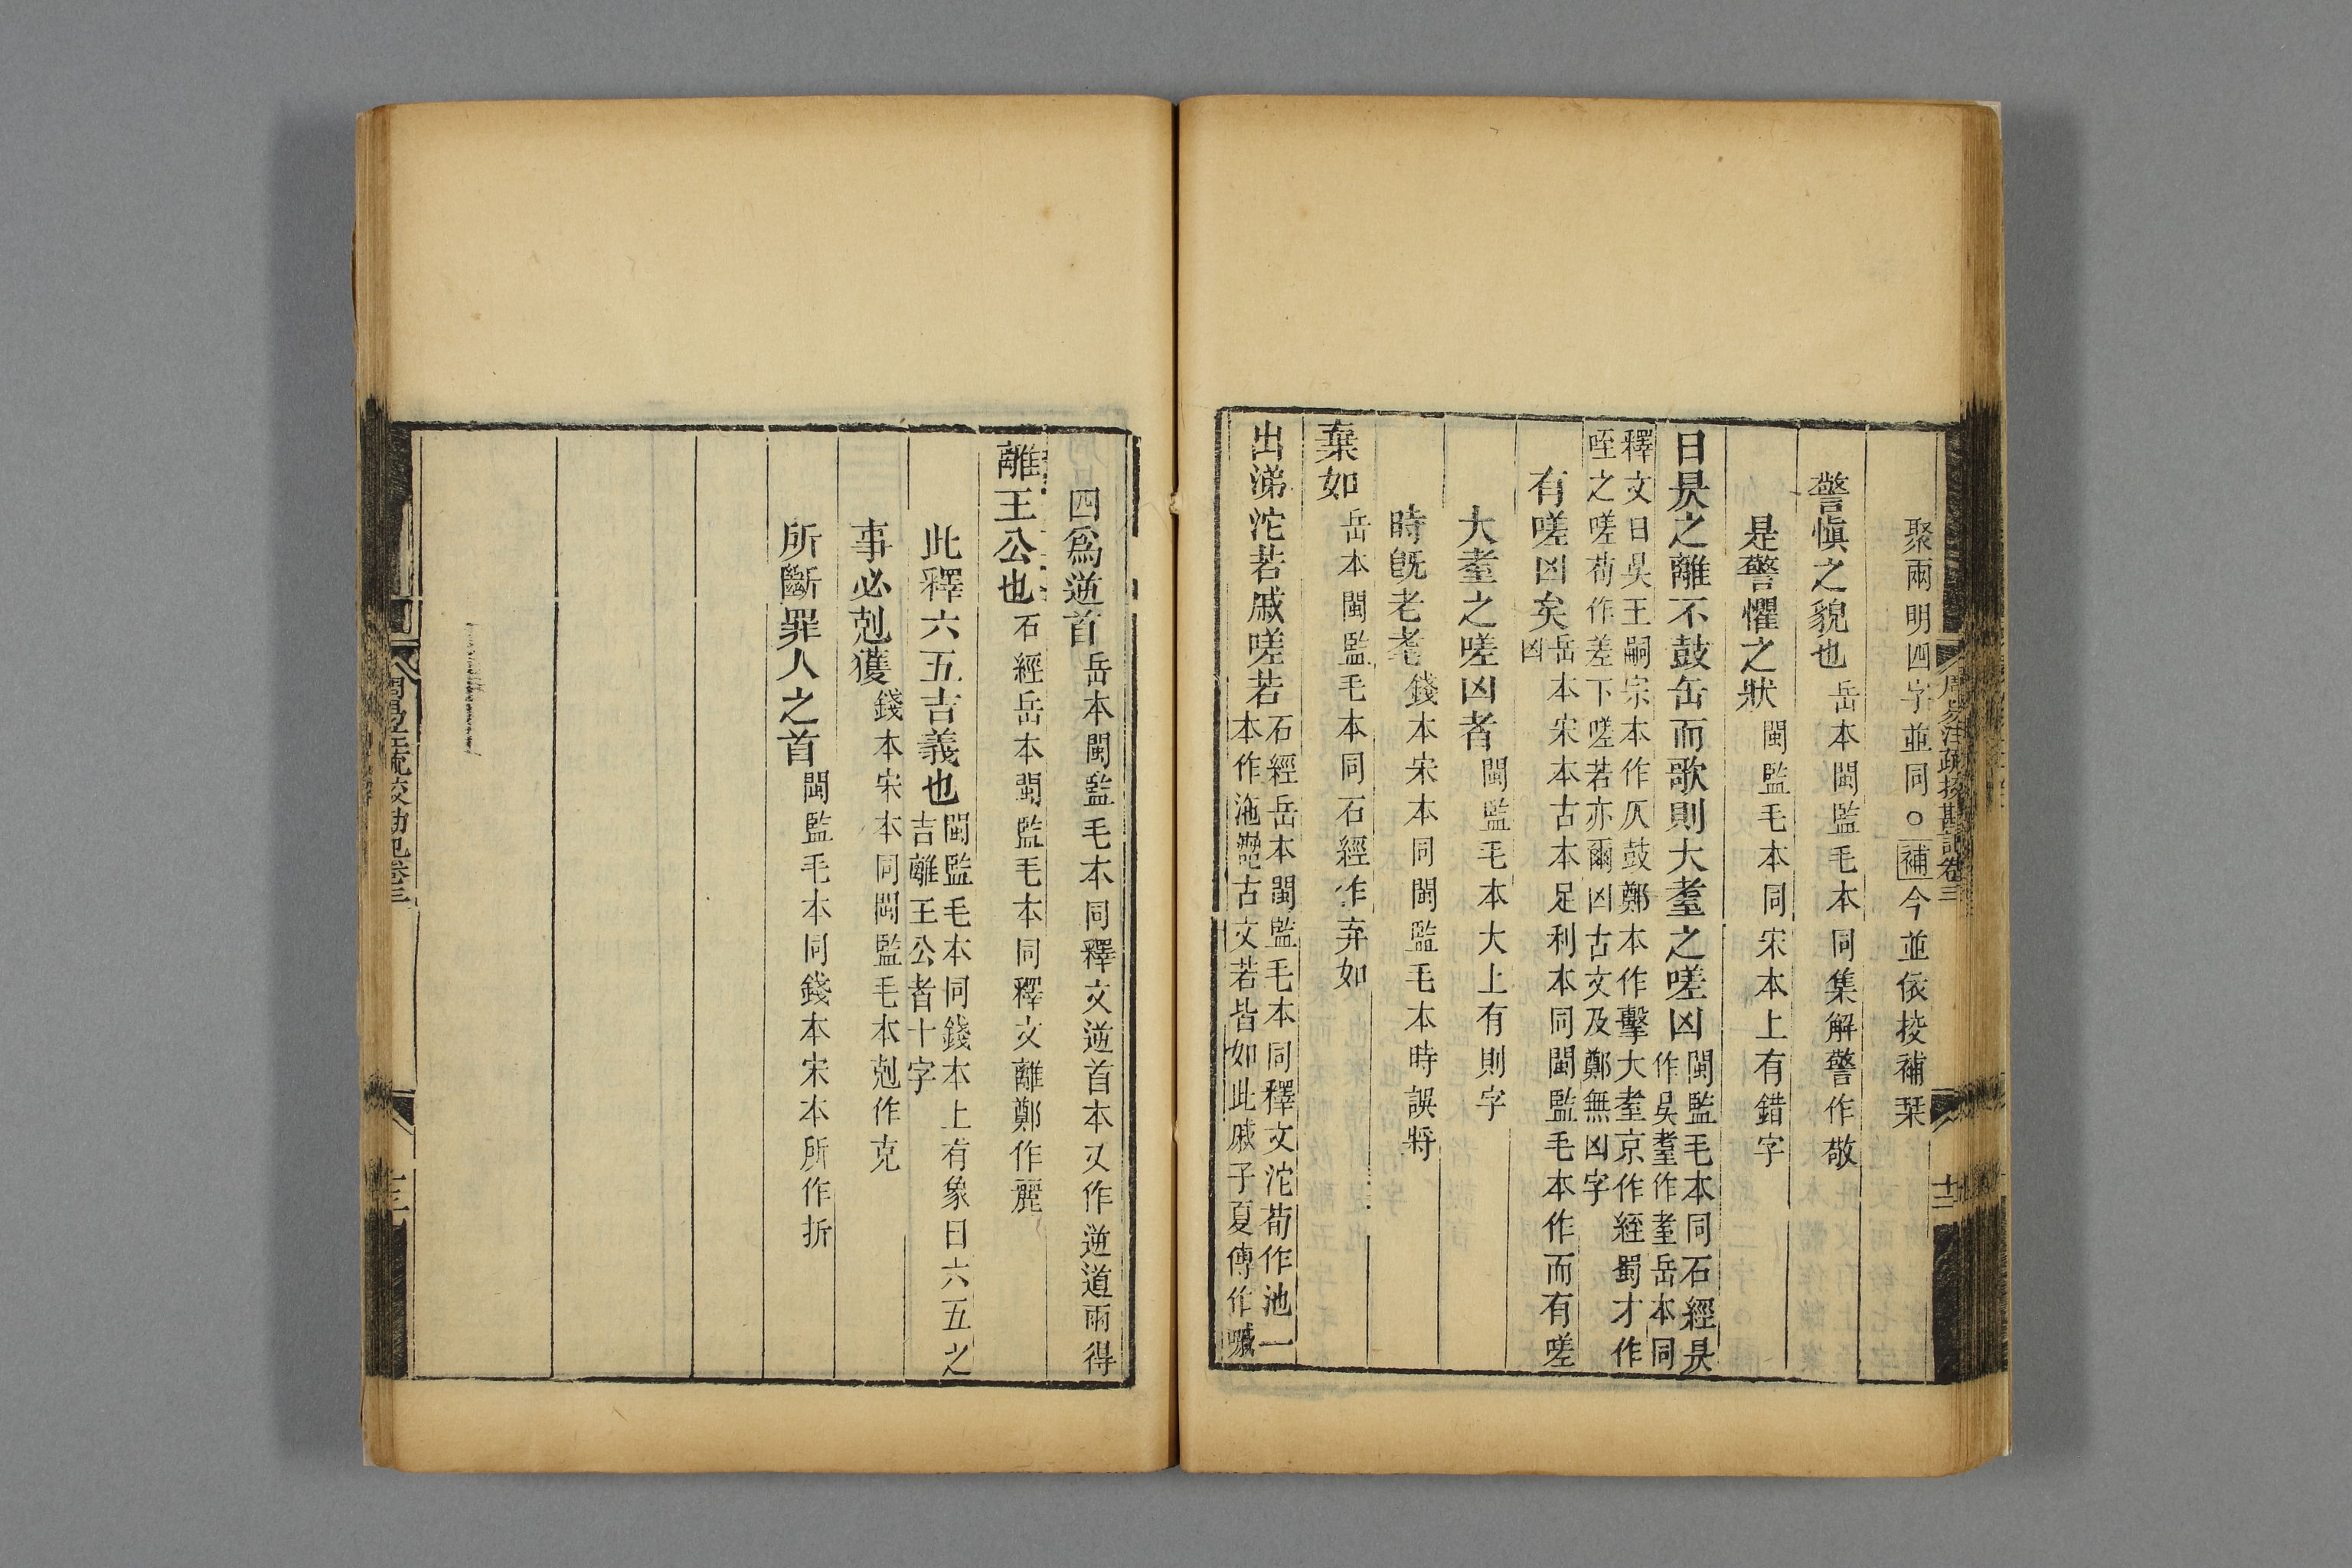 聚兩明四字並同○補今並依挍補栞
警愼之貌也岳本閩監毛本同集解警作敬
是警懼之狀閩監毛本同宋本上有錯字
日昃之離不鼓缶而歌則大耋之嗟凶閩監毛本同石經昃
作吳耋作耊岳本同
釋文日昊王嗣宗本作仄鼓鄭本作擊大耋京作絰蜀才作
咥之嗟荀作差下嗟若亦爾凶古文及鄭無凶字
有嗟凶矣岳本宋本古本足利本同閩監毛本作而有嗟
凶
大耋之嗟凶者閩監毛本大上有則字
時旣老耄錢本宋本同閩監毛本時誤將
棄如岳本閩監毛本同石經作弃如
出涕沱若戚嗟若石經岳本閩監毛本同釋文沱荀作池一
本作沲嗞古文若皆如此戚子夏傳作嘁
周易注疏挍勘記卷三
十二
四爲逆首岳本閩監毛本同釋文逆首本又作逆道兩得
離王公也石經岳本閩監毛本同釋文離鄭作麗
此釋六五吉義也閩監毛本同錢本上有象曰六五之
吉離王公者十字
事必剋獲錢本宋本同閩監毛本剋作克
所斷罪人之首閩監毛本同錢本宋本所作折
周易注疏挍勘記卷三
十三